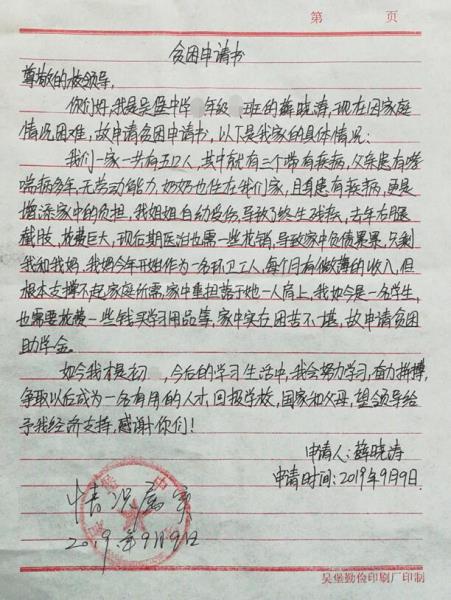 第 页
贫困申请书
尊敬的校领导,
你们好,我是吴堡中学 年级 班的薛晓涛,现在因家庭
情况困难,故申请贫困申请书,以下是我家的具体情况:
我们一家一共有五口人,其中就有三个带有疾病,父亲患有哮
喘病多年,无劳动能力,奶奶也住在我们家,且身患有疾病,更是
增添家中的负担,我姐姐自幼受伤,导致了终生残疾,去年右腿
截肢,花费巨大,现后期医治也需一些花销,导致家中负债累累,只剩
我和我妈,我妈今年开始作为一名环卫工人,每个月有微薄的收入,但
根本支撑不起家庭所需,家中重担落于她一人肩上,我如今是一名学生,
也需要花费一些钱买学习用品等,家中实在困苦不堪,故申请贫困
助学金。
如今我才是初 ,今后的学习生活中,我会努力学习,奋力拼搏,
争取以后成为一名有用的人才,回报学校,国家和父母,望领导给
予我经济支持,感谢你们!
申请人:薛晓涛
申请时间:2019年9月9日
情况属实
2019年9月9日
吴堡勤俭印刷厂印制